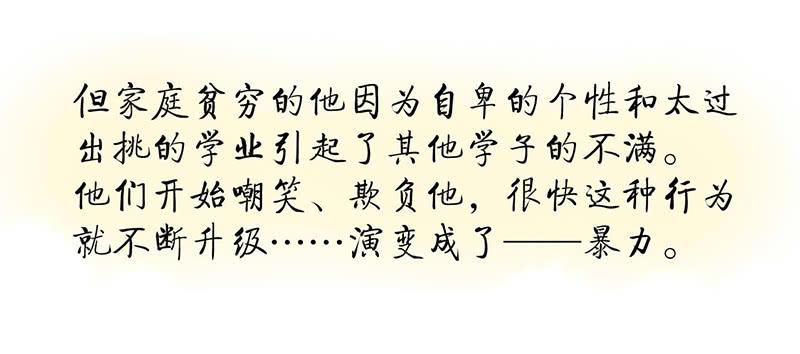 但家庭贫穷的他因为自卑的个性和太过
出挑的学业引起了其他学子的不满。
他们开始嘲笑、欺负他，很快这种行为
就不断升级……演变成了——暴力。